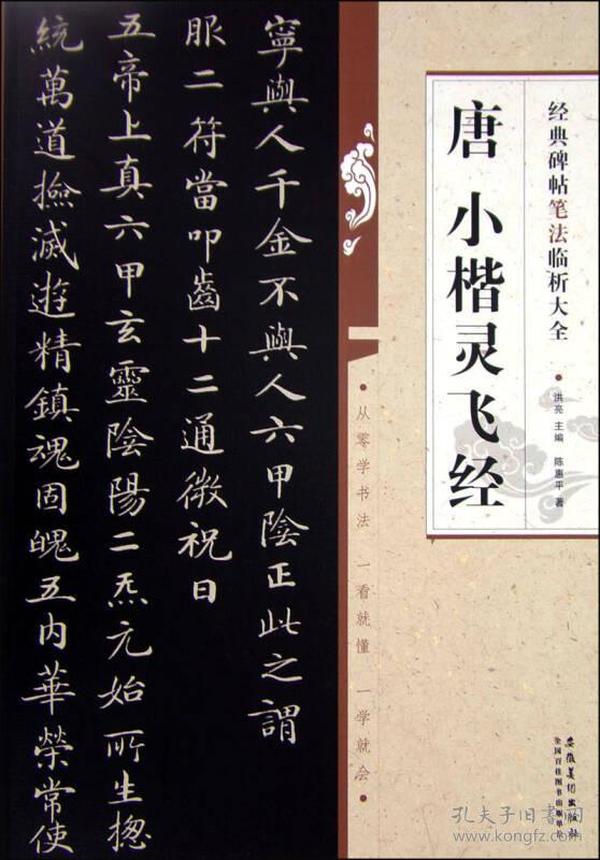 寧與人千金不與人六甲陰正此之謂
服二符當叩齒十二通微祝曰
五帝上真六甲玄靈陰陽二炁元始所生摠
統萬道撿滅遊精鎮魂固魄五内華榮常使
经典碑帖笔法临析大全
唐 小楷灵飞经
洪亮 主编 陈惠平 著
•从零学书法 一看就懂 一学就会•
安徽美术出版社
全国百佳图书出版单位
孔夫子旧书网
www.kongfz.com